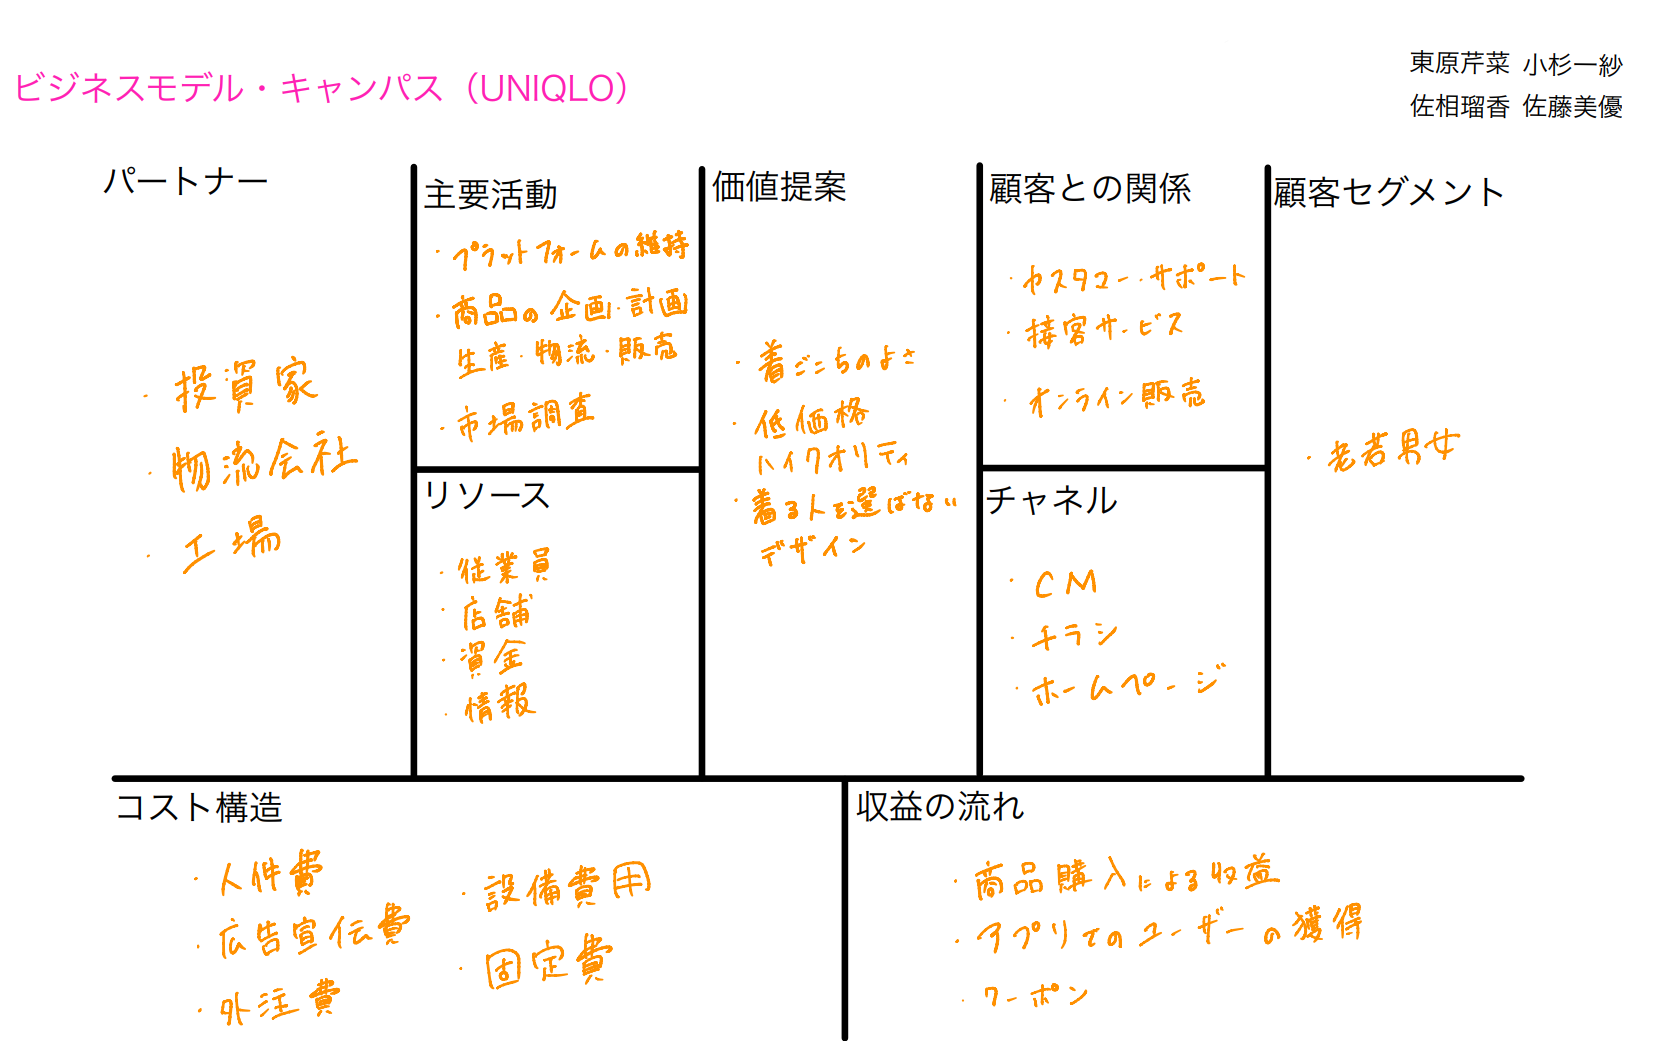 ビジネスモデル・キャンパス（UNIQLO）
東原芹菜 小杉一紗
佐相瑠香 佐藤美優
パートナー
・投資家
・物流会社
・工場
主要活動
・プラットフォームの維持
・商品の企画・計画
生産・物流・販売
・市場調査
リソース
・従業員
・店舗
・資金
・情報
価値提案
・着ごこちのよさ
・低価格
ハイクオリティ
・着る人を選ばない
デザイン
顧客との関係
・カスタマー・サポート
・接客サービス
・オンライン販売
チャネル
・CM
・チラシ
・ホームページ
顧客セグメント
・老若男女
コスト構造
・人件費
・広告宣伝費
・外注費
・設備費用
・固定費
収益の流れ
・商品購入による収益
・アプリでのユーザーの獲得
・クーポン